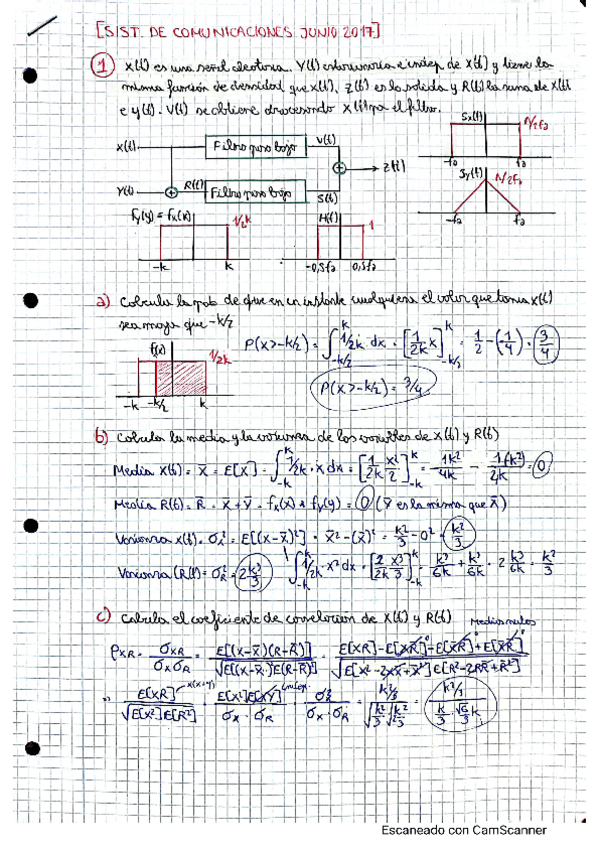 [SIST. DE COMUNICACIONES JUNIO 2017]
1 X(t) es una señal aleatoria. Y(t) estacionaria e indep de X(t) y tiene la
misma función de densidad que X(t), Z(t) es la salida y R(t) la suma de X(t)
e Y(t). V(t) se obtiene procesando X(t) por el filtro.
X(t) Filtro paso bajo V(t)
Z(t)
Y(t) R(t) Filtro paso bajo S(t)
Sx(f) N/2f2
-f2 f2
Sy(f) N/2f2
-f2 f2
fy(y) = fx(x) 1/2k
-k k
H(f) 1
-0,5f2 0,5f2
a) Calcula la prob de que en un instante cualquiera el valor que toma X(t)
sea mayor que -k/2
f(x) 1/2k
-k -k/2 k
P(X>-k/2) = ∫_{-k/2}^{k} 1/2k dx = [1/2k x]_{-k/2}^{k} = 1/2 - (-1/4) = 3/4
P(X>-k/2) = 3/4
b) Calcula la media y la varianza de las variables de X(t) y R(t)
Media X(t) = X̄ = E[X] = ∫_{-k}^{k} 1/2k · x dx = [1/2k x²/2]_{-k}^{k} =
Media R(t) = R̄ = X̄ + Ȳ = fx(x) + fy(y) = 0 (Ȳ es la misma que X̄)
Varianza X(t) = σx² = E[(X-X̄)²] = X̄² - (X̄)² = k²/3 - 0² = k²/3
Varianza (R(t)) = σR² =
c) Calcula el coeficiente de correlación de X(t) y R(t) Medias nulas
ρXR = σXR/σXσR = E[(X-X̄)(R-R̄)]
E[XR] X(X+Y)
√E[X²]E[R²]
Escaneado con CamScanner